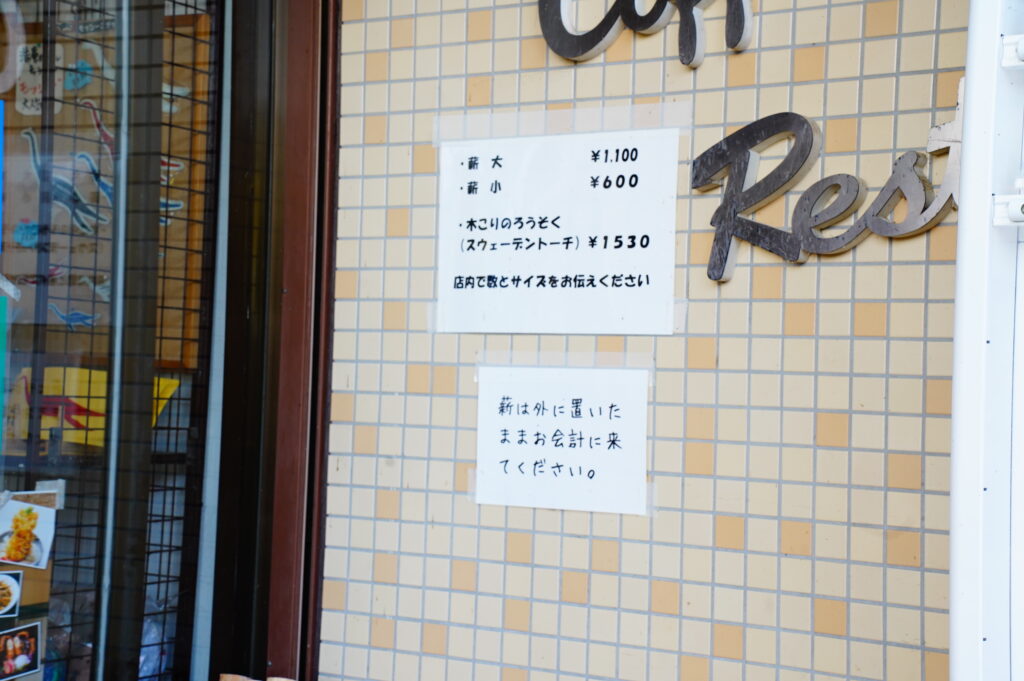 Coff
Rest
・薪 大 ¥1,100
・薪 小 ¥600
・木こりのろうそく
(スウェーデントーチ) ¥1530
店内で数とサイズをお伝えください
薪は外に置いた
ままお会計に来
てください。